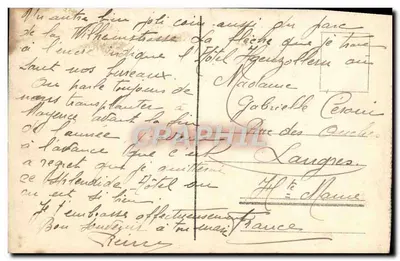 Un autre bien joli coin aussi du parc
de la Wilhelmstrasse La flèche que je trace
à l'encre indique l'Hôtel Hohenzollern où
sont nos bureaux.
On parle toujours de
nous transplanter à
Mayence avant la fin
de l'année
à l'avance que c'est
à regret que je quitterai
ce splendide Hôtel où
on est si bien
Je t'embrasse affectueusement
Bon souvenir à ton mari
Madame
Gabrielle
Rue des
Langres
Hte Marne
France
CPARAMA.COM